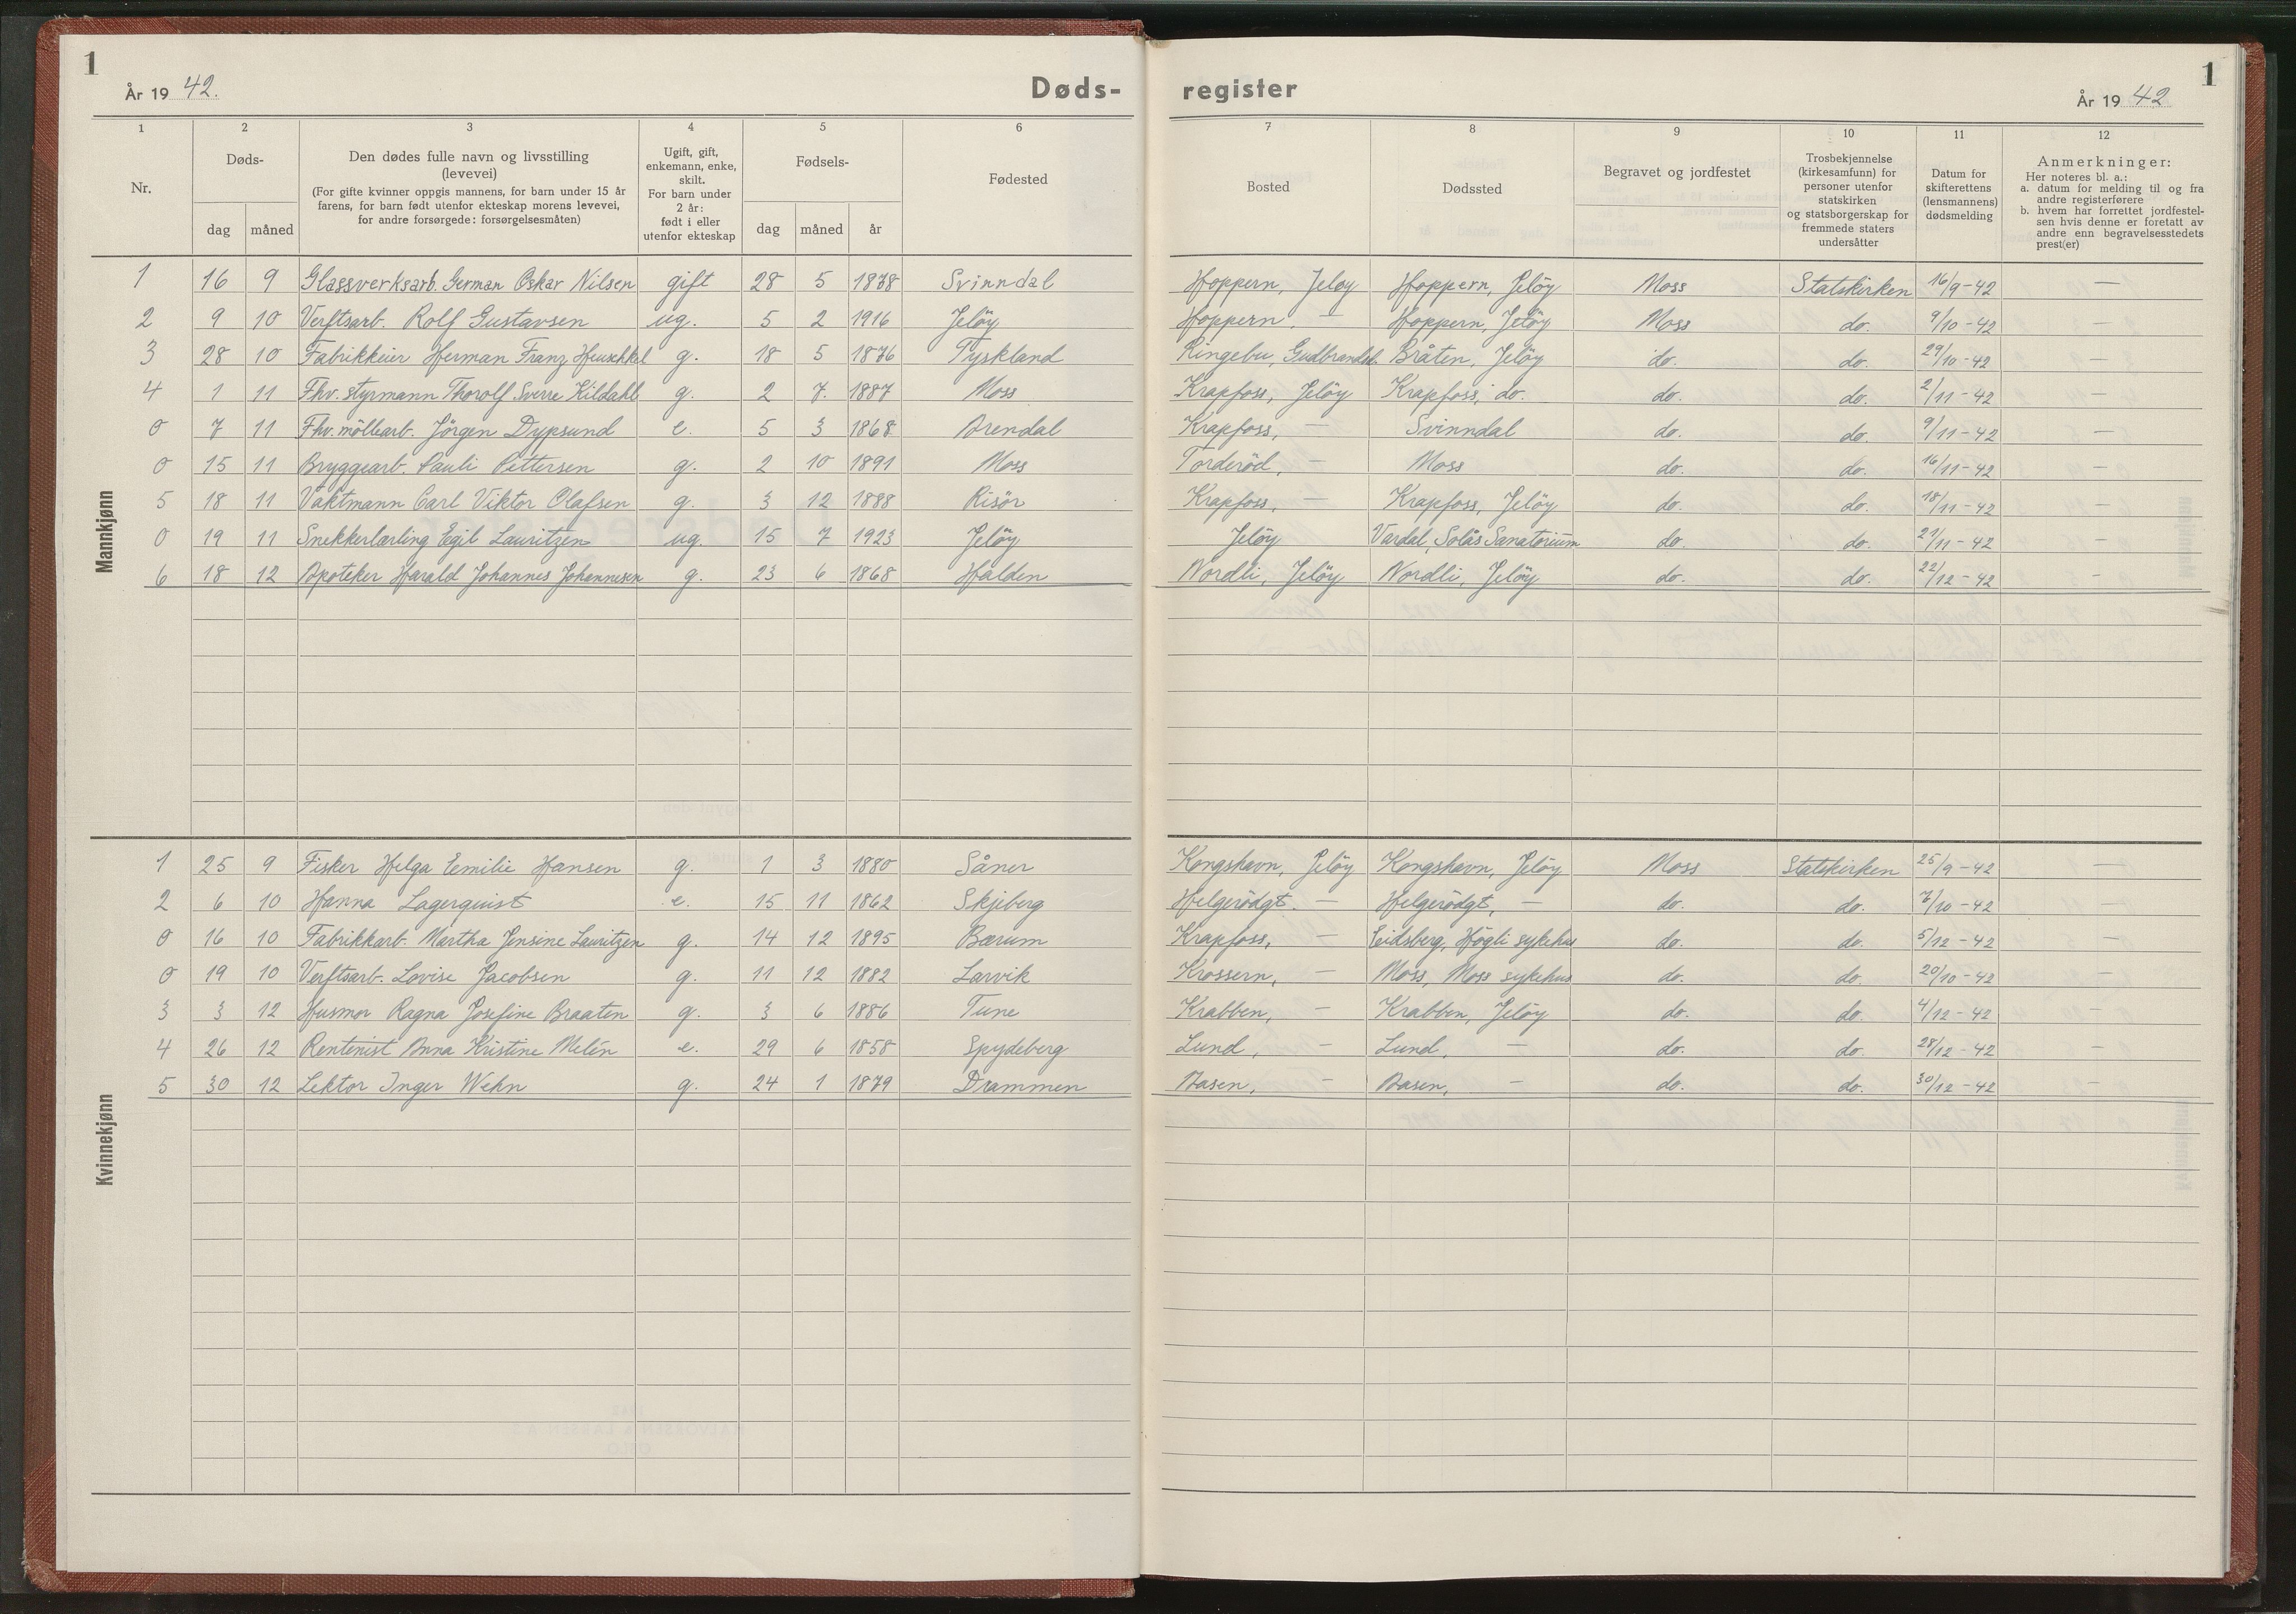 1
År 19 42.
Døds-
register
1
År 19 42
1 2 3 4 5 6 7 8 9 10 11 12
Nr.
Døds-
dag måned
Den dødes fulle navn og livsstilling
(levevei)
(For gifte kvinner oppgis mannens, for barn under 15 år
farens, for barn født utenfor ekteskap morens levevei,
for andre forsørgede: forsørgelsesmåten)
Ugift, gift,
enkemann, enke,
skilt.
For barn under
2 år:
født i eller
utenfor ekteskap
Fødsels-
dag måned år
Fødested
Bosted
Dødssted
Begravet og jordfestet
Trosbekjennelse
(kirkesamfunn) for
personer utenfor
statskirken
og statsborgerskap for
fremmede staters
undersåtter
Datum for
skifterettens
(lensmannens)
dødsmelding
Anmerkninger:
Her noteres bl. a.:
a. datum for melding til og fra
andre registerførere
b. hvem har forrettet jordfestel-
sen hvis denne er foretatt av
andre enn begravelsesstedets
prest(er)
Mannkjønn
1 16 9 Glassverksarb. German Oskar Nilsen gift 28 5 1878 Svinndal Hoppern, Jeløy Hoppern, Jeløy Moss Statskirken 16/9-42 —
2 9 10 Verftsarb. Rolf Gustavsen ug. 5 2 1916 Jeløy Hoppern, — Hoppern, Jeløy Moss do. 9/10-42 —
3 28 10 Fabrikkeier Herman Franz Heuschkel g. 18 5 1876 Tyskland Ringebu, Gudbrandsd. Bråten, Jeløy do. do. 29/10-42 —
4 1 11 Fhv. styrmann Thorolf Sverre Kildahl g. 2 7. 1887 Moss Krapfoss, Jeløy Krapfoss, do. do. do. 2/11-42 —
0 7 11 Fhv. möllearb. Jörgen Dypsund e. 5 3 1868 Arendal Krapfoss, — Svinndal do. do. 9/11-42 —
0 15 11 Bryggearb. Pauli Pettersen g. 2 10 1891 Moss Torderöd, — Moss do. do. 16/11-42 —
5 18 11 Vaktmann Carl Viktor Olafsen g. 3 12 1888 Risör Krapfoss, — Krapfoss, Jeløy do. do. 18/11-42 —
0 19 11 Snekkerlærling Egil Lauritzen ug. 15 7 1923 Jeløy Jeløy Vardal, Solås Sanatorium do. do. 21/11-42 —
6 18 12 Apoteker Harald Johannes Johannesen g. 23 6 1868 Halden Nordli, Jeløy Nordli, Jeløy do. do. 22/12-42 —
Kvinnekjønn
1 25 9 Fisker Helga Emilie Hansen g. 1 3 1880 Såner Kongshavn, Jeløy Kongshavn, Jeløy Moss Statskirken 25/9-42 —
2 6 10 Hanna Lagerquist e. 15 11 1862 Skjeberg Helgerödgt. — Helgerödgt, — do. do. 7/10-42 —
0 16 10 Fabrikkarb. Martha Jensine Lauritzen g. 14 12 1895 Bærum Krapfoss, — Eidsberg, Högli sykehus do. do. 5/12-42 —
0 19 10 Verftsarb. Lovise Jacobsen g. 11 12 1882 Larvik Krossern, — Moss, Moss sykehus do. do. 20/10-42 —
3 3 12 Husmor Ragna Josefine Braaten g. 3 6 1886 Tune Krabben, — Krabben, Jeløy do. do. 4/12-42 —
4 26 12 Rentenist Anna Kristine Melén e. 29 6 1858 Spydeberg Lund, — Lund, — do. do. 28/12-42 —
5 30 12 Lektor Inger Wehn g. 24 1 1879 Drammen Åasen, — Åasen, — do. do. 30/12-42 —